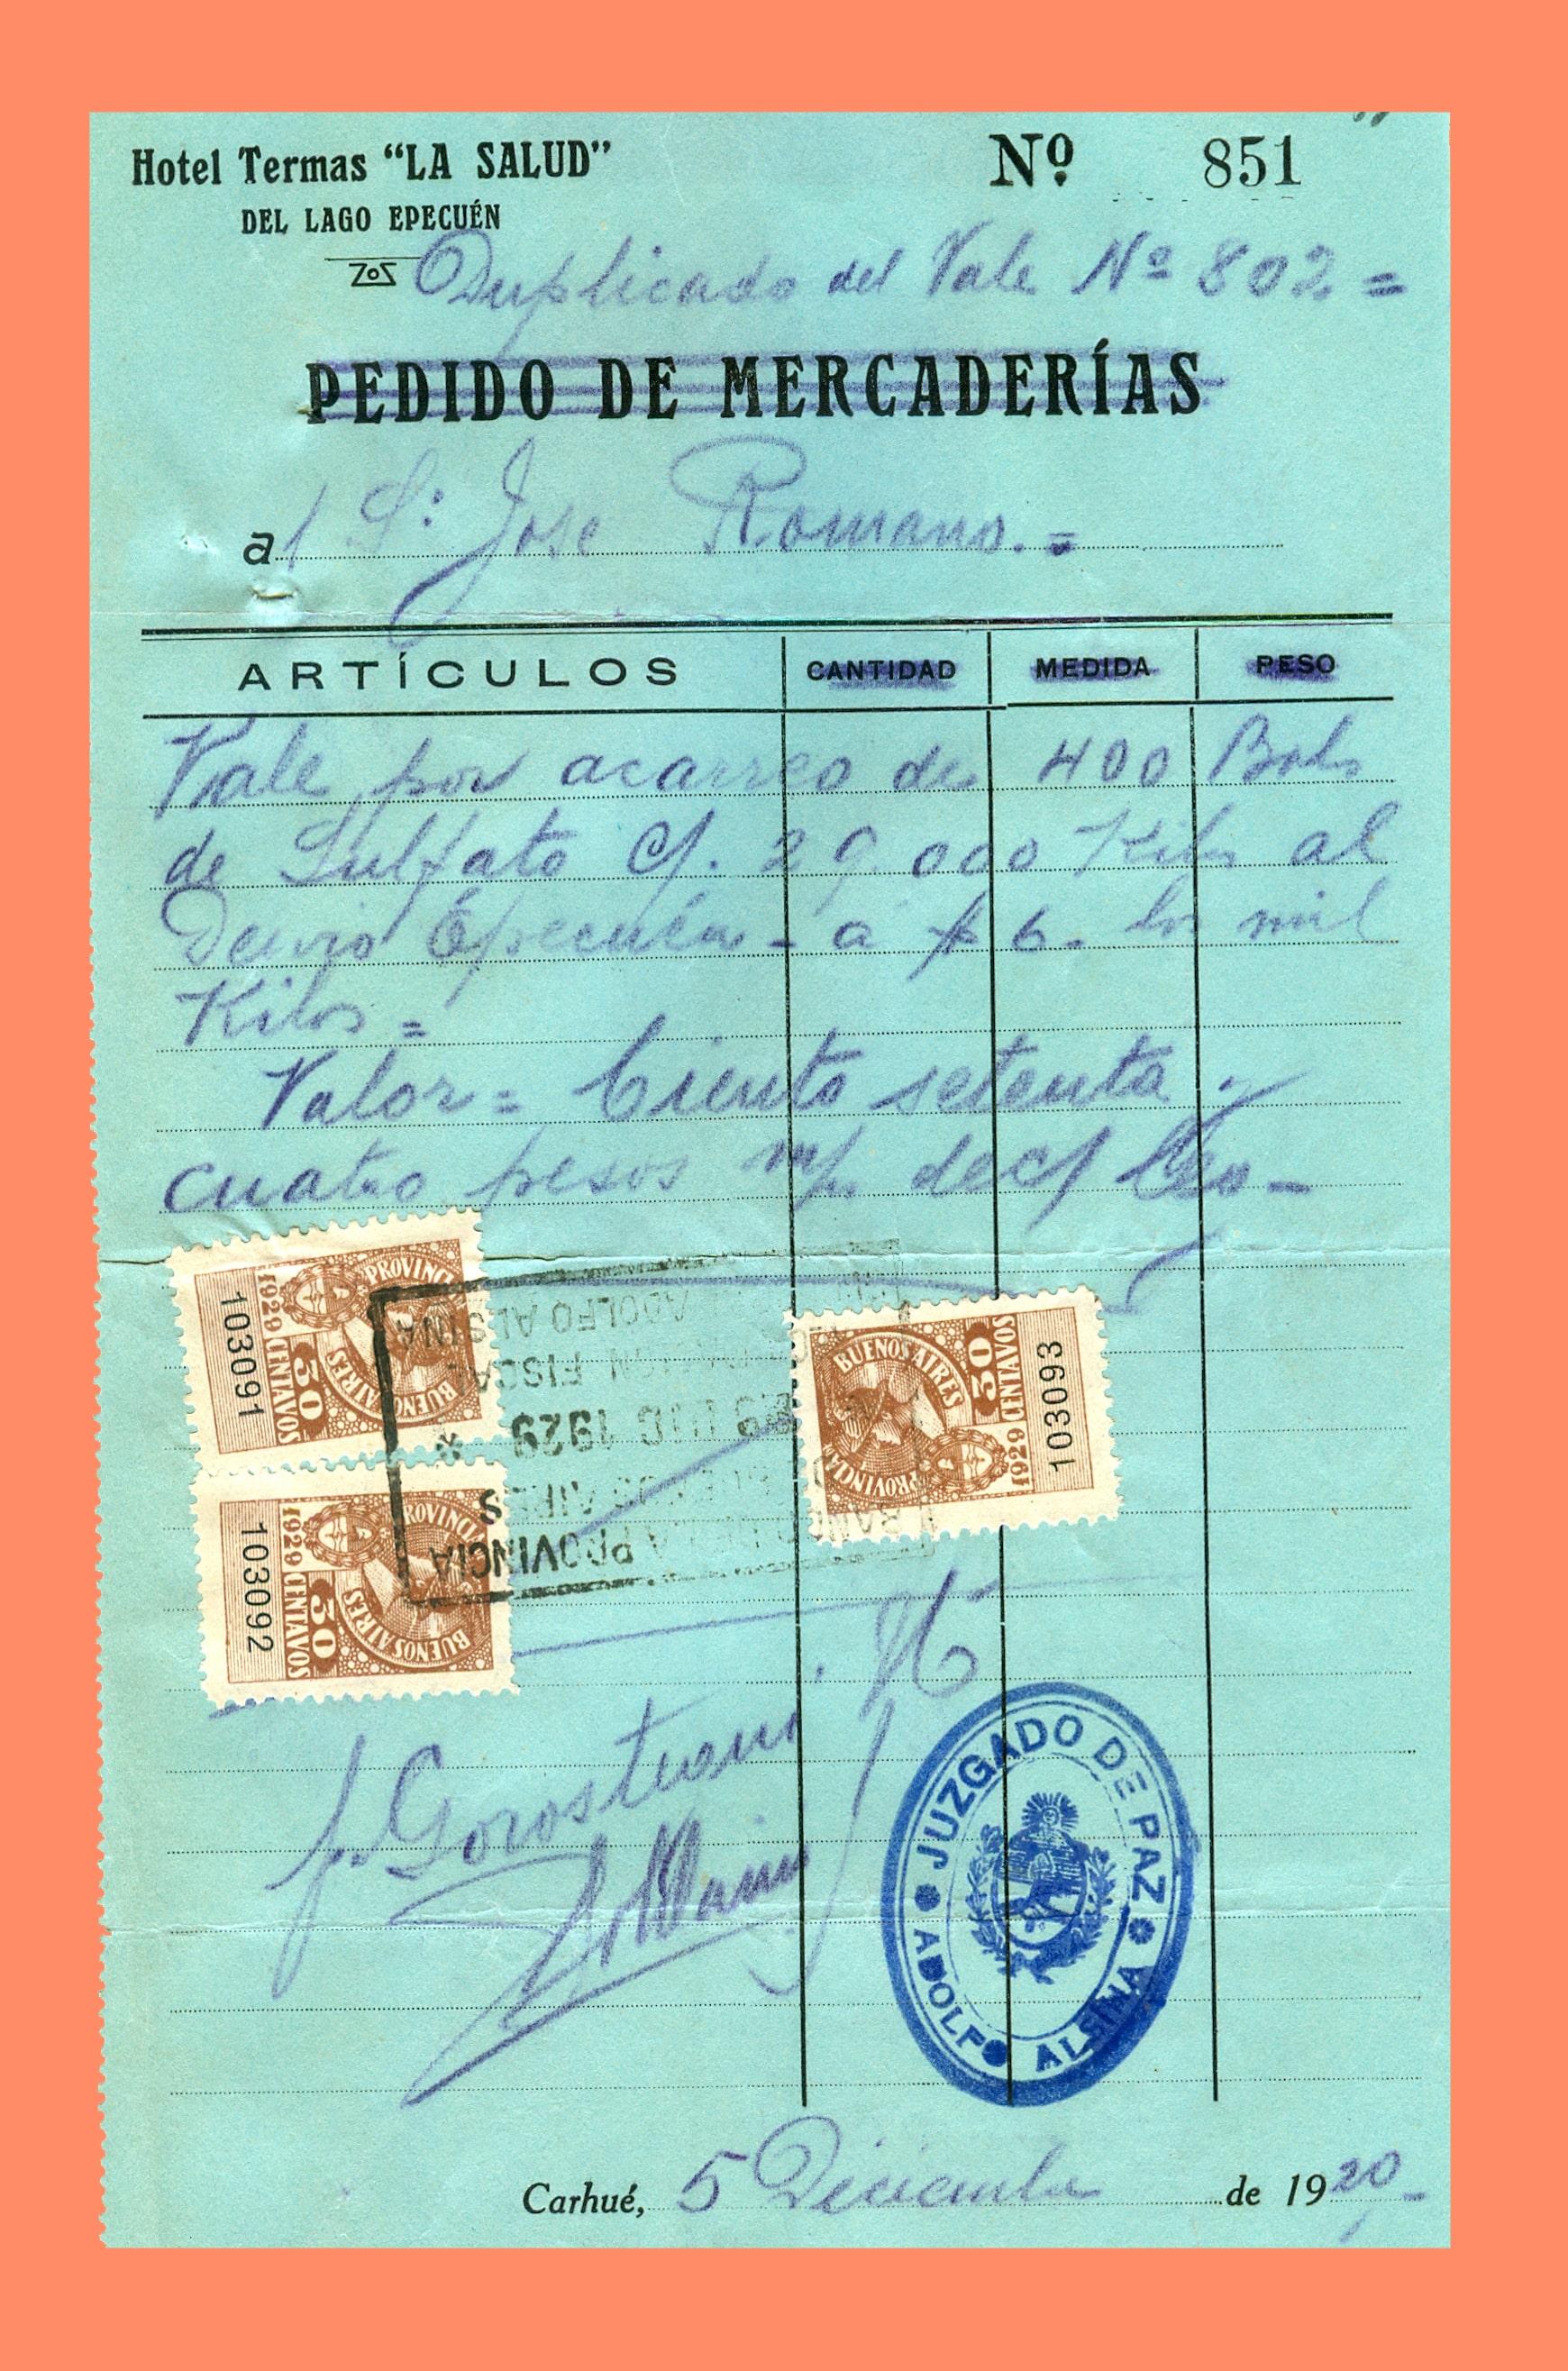 Hotel Termas “LA SALUD”
DEL LAGO EPECUÉN
Nº 851
Duplicado del Vale Nº 802 =
PEDIDO DE MERCADERÍAS
al Sr: Jose Romano. =
ARTÍCULOS CANTIDAD MEDIDA PESO
Vale por acarreo de 400 Bols
de Sulfato c/. 29.000 Kilos al
Desvio Epecuén - a $ 6. los mil
Kilos =
Valor = Ciento setenta y
cuatro pesos m/n. de c/
PROVINCIA
BUENOS AIRES
1929
50 CENTAVOS
103091
PROVINCIA
BUENOS AIRES
1929
50 CENTAVOS
103092
PROVINCIA
BUENOS AIRES
1929
50 CENTAVOS
103093
BANCO DE LA PROVINCIA
DE BUENOS AIRES
DIC 1929
FISCAL
ADOLFO ALSINA
JUZGADO DE PAZ
ADOLFO ALSINA
Carhué, 5 Diciembre de 19